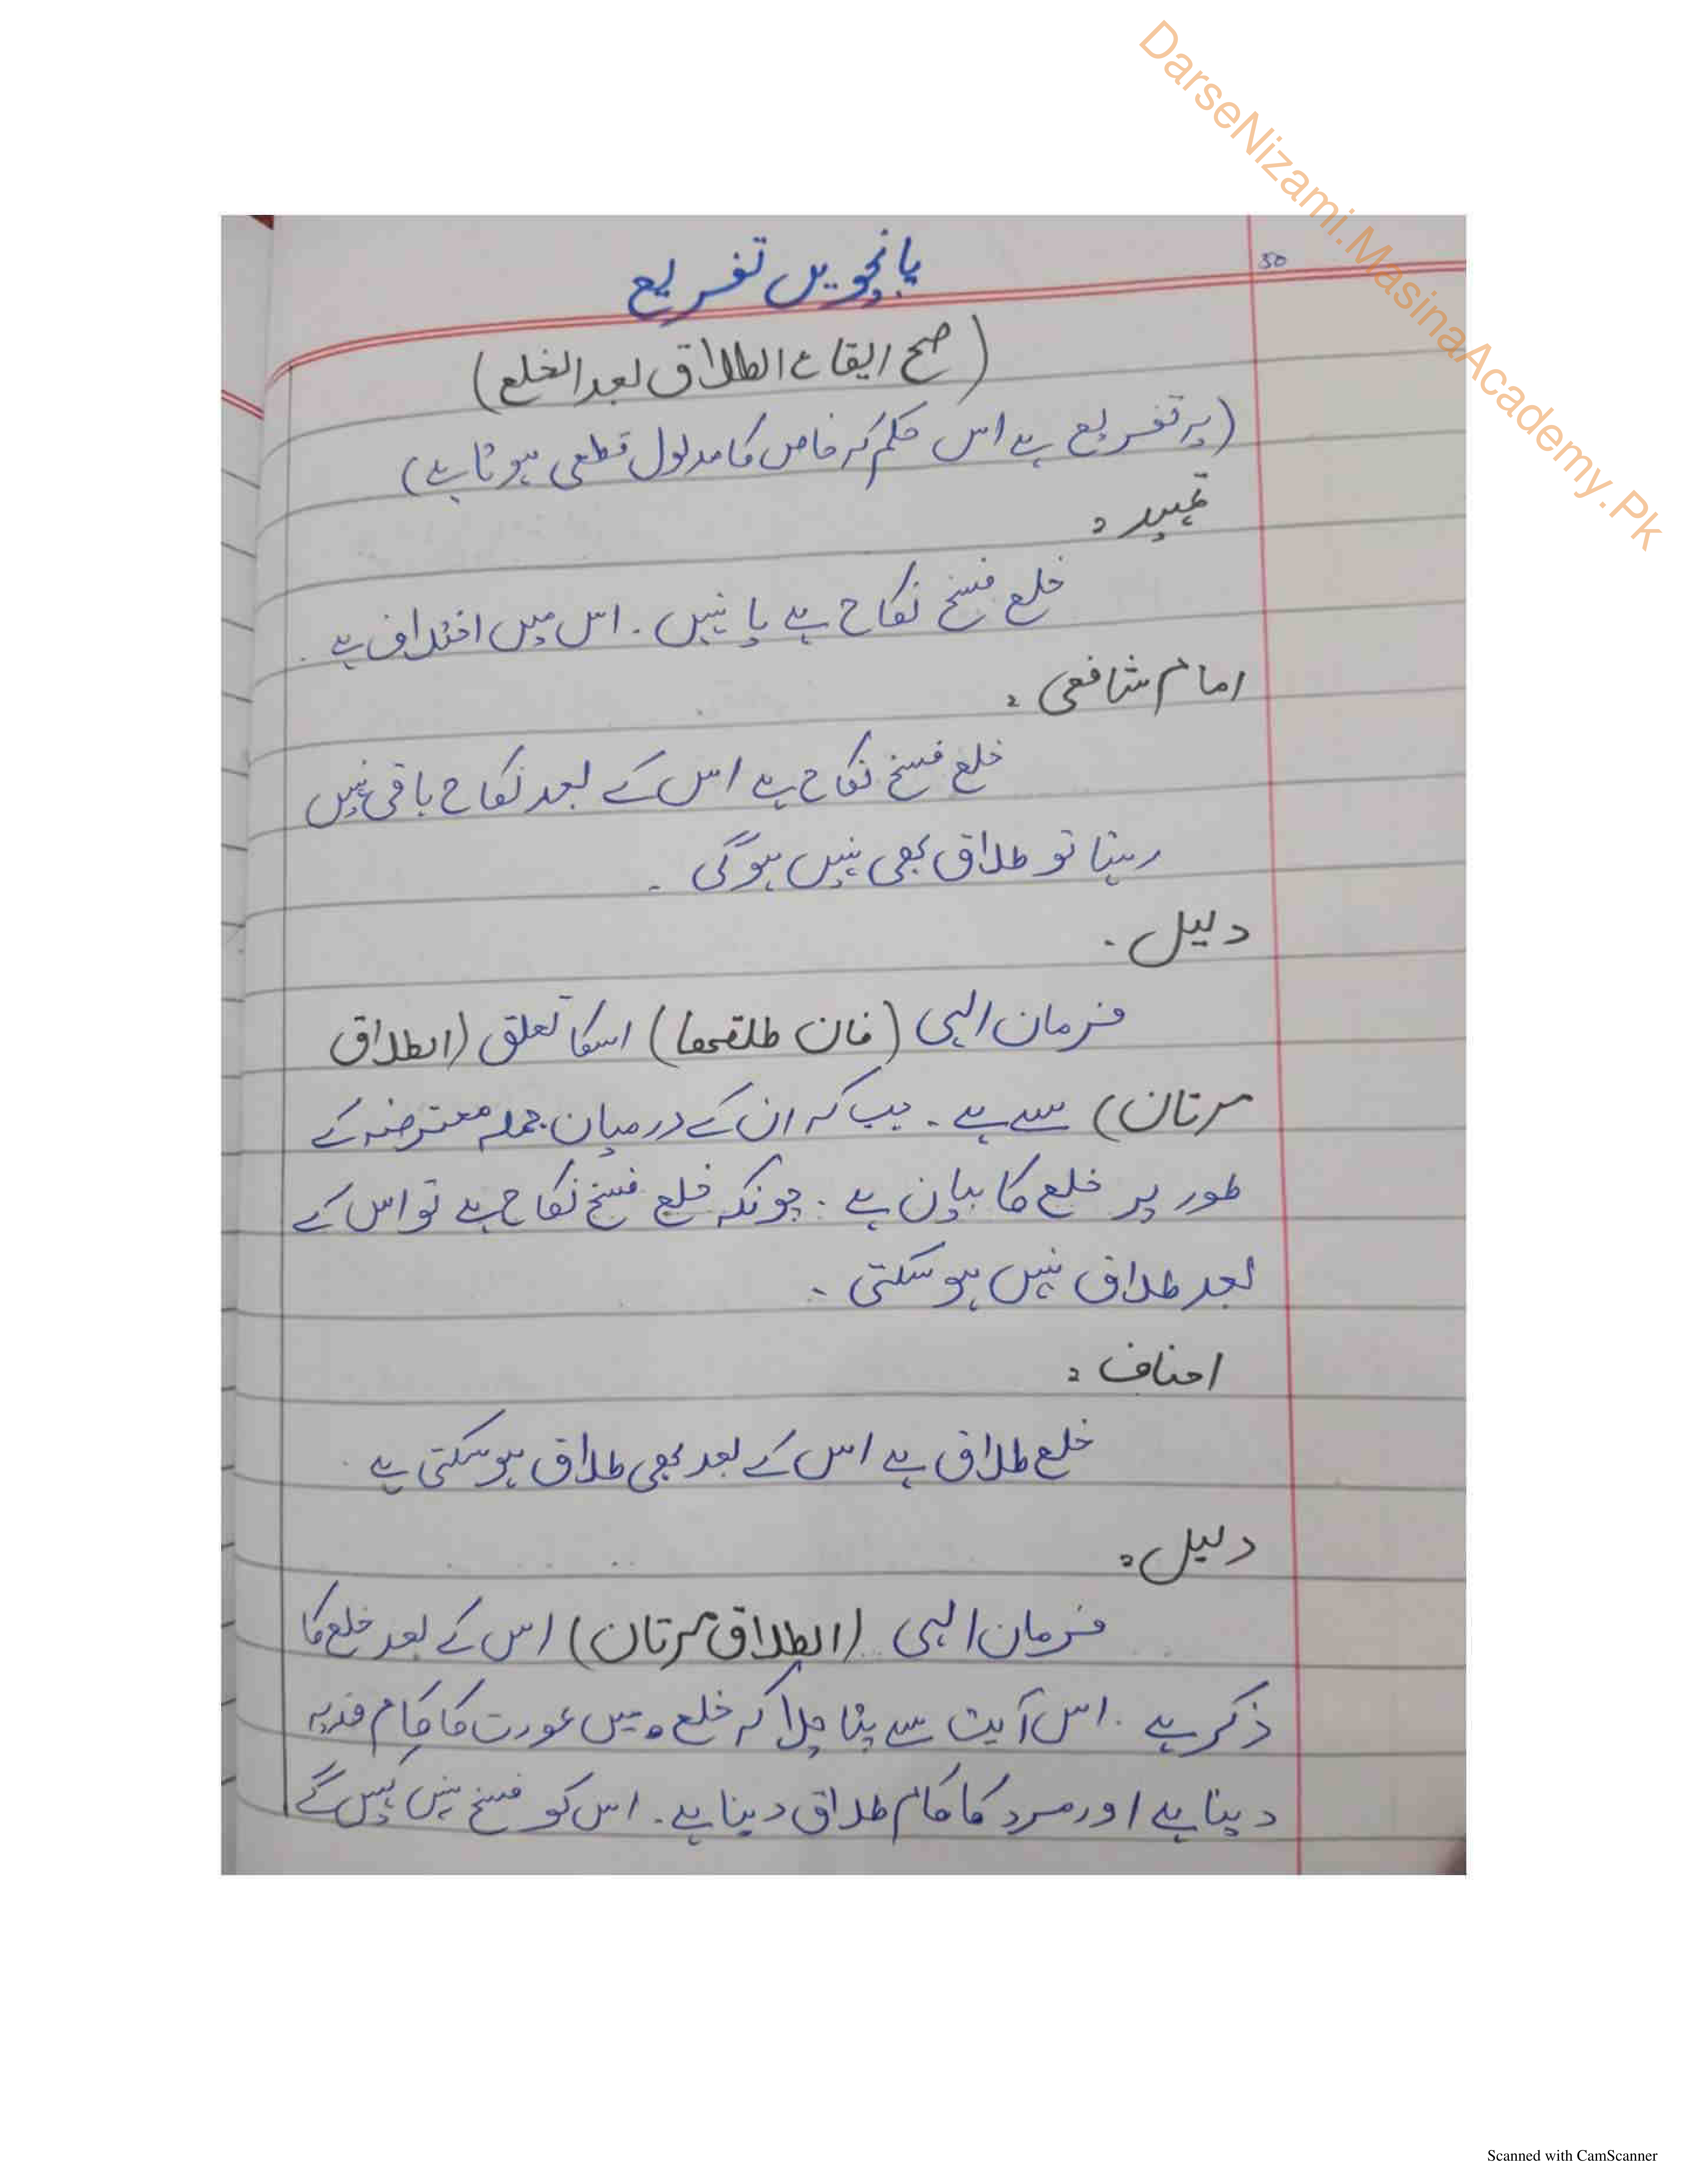 DarseNizami.MasinaAcademy.Pk
50
پانچویں تفریع
(صح ایقاع الطلاق بعد الخلع)
(یہ تفریع ہے اس حکم کہ خاص کا مدلول قطعی ہوتا ہے)
تمہید :
خلع فسخ نکاح ہے یا نہیں ۔ اس میں اختلاف ہے ۔
امام شافعی :
خلع فسخ نکاح ہے اس کے بعد نکاح باقی نہیں
رہتا تو طلاق بھی نہیں ہوگی ۔
دلیل ۔
فرمان الہی (فان طلقھا) اسکا تعلق (الطلاق
مرتان) سے ہے ۔ جب کہ ان کے درمیان جملہ معترضہ کے
طور پر خلع کا بیان ہے ۔ چونکہ خلع فسخ نکاح ہے تو اس کے
بعد طلاق نہیں ہو سکتی ۔
احناف :
خلع طلاق ہے اس کے بعد بھی طلاق ہو سکتی ہے ۔
دلیل :
فرمان الہی (الطلاق مرتان) اس کے بعد خلع کا
ذکر ہے ۔ اس آیت سے پتا چلا کہ خلع میں عورت کا کام فدیہ
دینا ہے اور مرد کا کام طلاق دینا ہے ۔ اس کو فسخ نہیں کہیں گے
Scanned with CamScanner